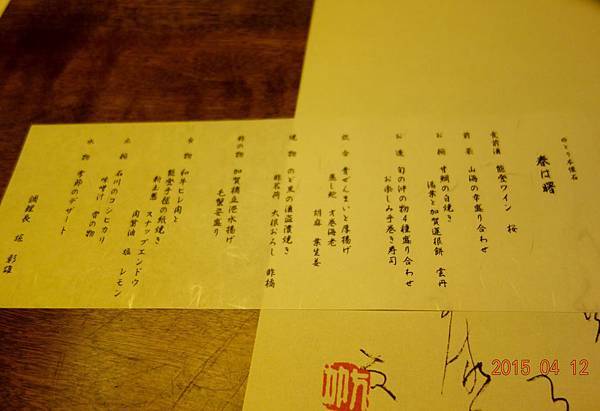 春は曙
食前酒 能登ワイン 桜
前菜 山海の幸盛り合わせ
お椀 甘鯛の白焼き
湯葉と加賀蓮根餅 雲丹
お造 旬の沖の物4種盛り合わせ
お楽しみ手巻き寿司
炊合 青ぜんまいと厚揚げ
蒸し鮑 才巻海老
胡麻 葉生姜
焼物 のど黒の酒盗漬焼き
酢茗荷 大根おろし 酢橘
酢の物 加賀橋立港水揚げ
毛蟹姿盛り
食物 和牛ヒレ肉と
能登手毬の紙焼き
新玉葱 スナップエンドウ
肉醤油 塩 レモン
止椀 石川のコシヒカリ
味噌汁 香の物
水物 季節のデザート
調理長 堀 彰雄
2015 04 12